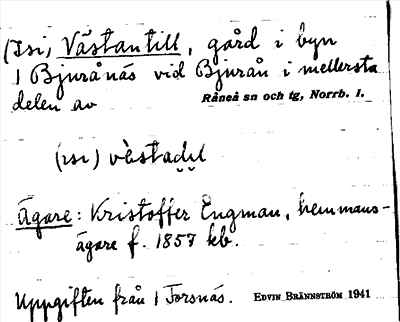 (Isi) Västantill, gård i byn
1 Bjurånäs vid Bjurån i mellersta
delen av Råneå sn och tg, Norrb. l.
(ısı) vèstadı̣l
Ägare: Kristoffer Engman, hemmans-
ägare f. 1857 kb.
Uppgiften från 1 Forsnäs. EDVIN BRÄNNSTRÖM 1941